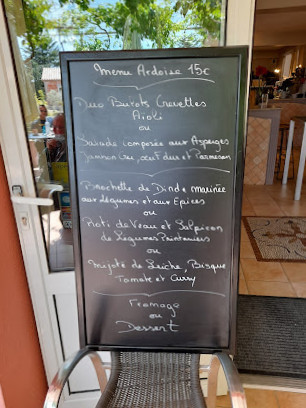 Menu Ardoise 15€
Duo Bulots Crevettes
Aïoli
ou
Salade composée aux Asperges
Jambon cru, oeuf dur et Parmesan
Brochette de Dinde marinée
aux Légumes et aux Epices
ou
Roti de Veau et Salpicon
de Légumes Printaniers
ou
Mijoté de Seiche, Bisque
Tomate et Curry
Fromage
ou
Dessert